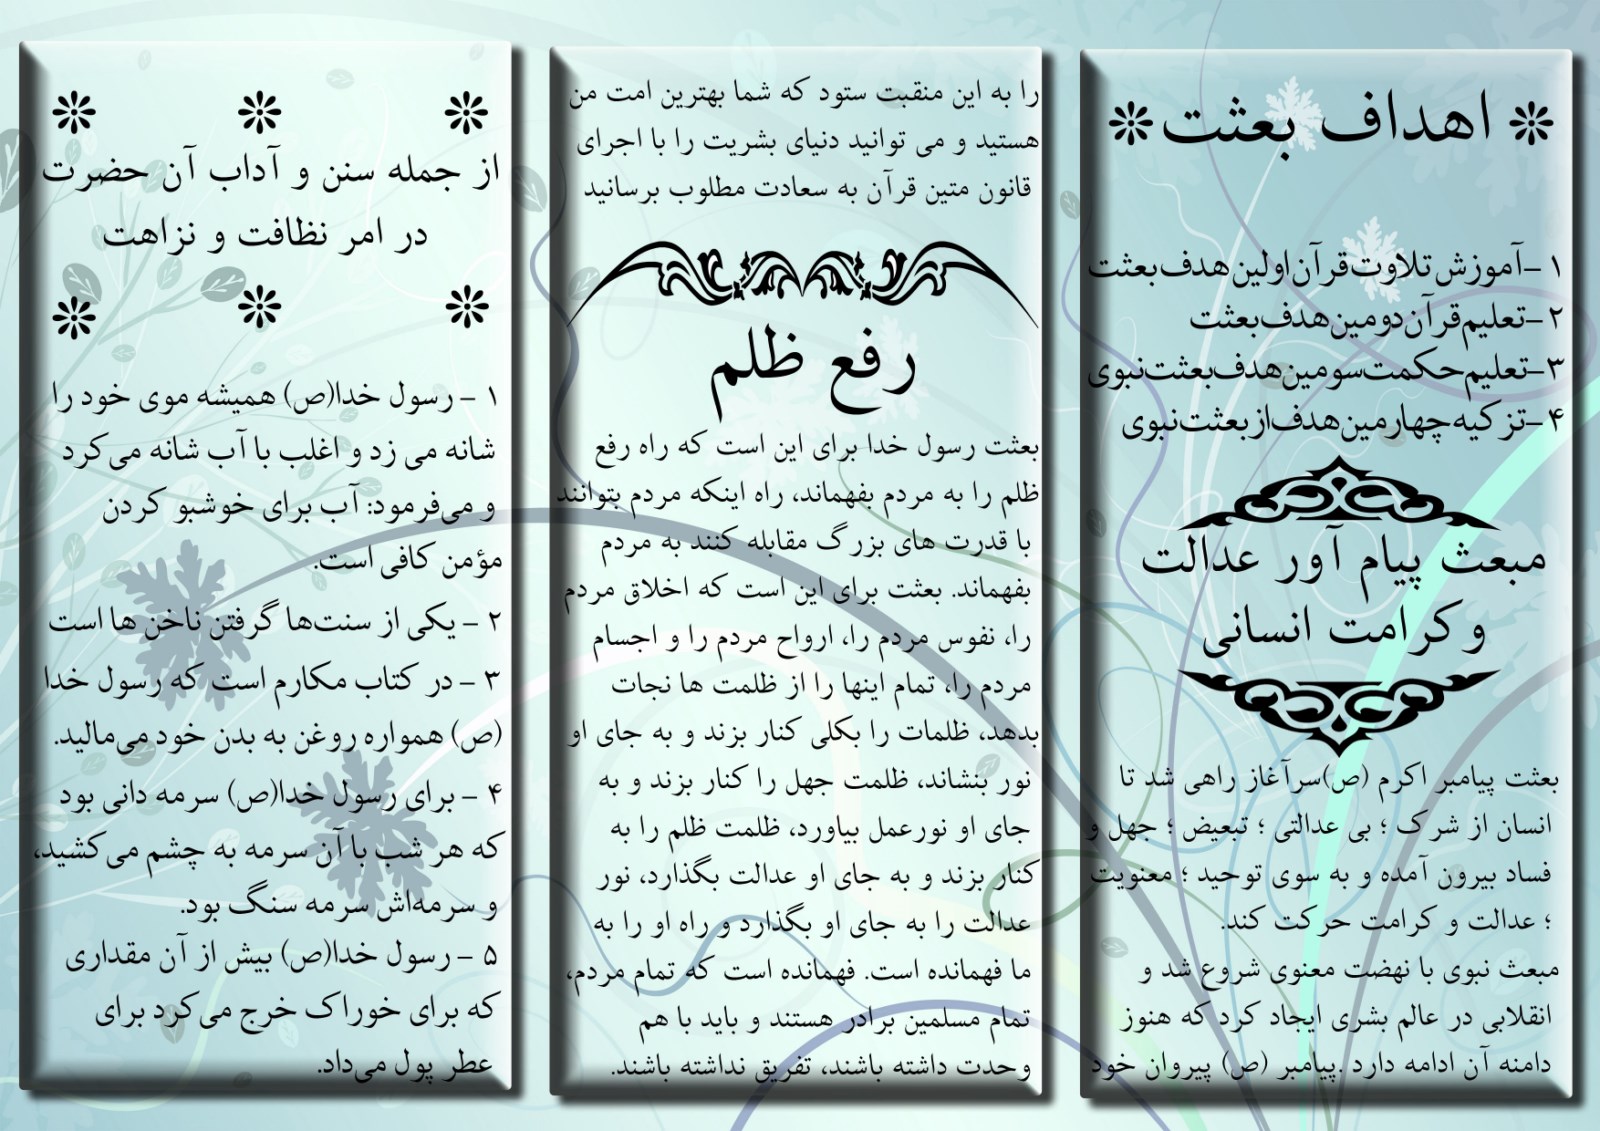 اهداف بعثت
۱-آموزش تلاوت قرآن اولین هدف بعثت
۲-تعلیم قرآن دومین هدف بعثت
۳-تعلیم حکمت سومین هدف بعثت نبوی
۴-تزکیه چهارمین هدف از بعثت نبوی
مبعث پیام آور عدالت
و کرامت انسانی
بعثت پیامبر اکرم (ص)سرآغاز راهی شد تا
انسان از شرک ؛ بی عدالتی ؛ تبعیض ؛ جهل و
فساد بیرون آمده و به سوی توحید ؛ معنویت
؛ عدالت و کرامت حرکت کند.
مبعث نبوی با نهضت معنوی شروع شد و
انقلابی در عالم بشری ایجاد کرد که هنوز
دامنه آن ادامه دارد .پیامبر (ص) پیروان خود
را به این منقبت ستود که شما بهترین امت من
هستید و می توانید دنیای بشریت را با اجرای
قانون متین قرآن به سعادت مطلوب برسانید
رفع ظلم
بعثت رسول خدا برای این است که راه رفع
ظلم را به مردم بفهماند، راه اینکه مردم بتوانند
با قدرت های بزرگ مقابله کنند به مردم
بفهماند. بعثت برای این است که اخلاق مردم
را، نفوس مردم را، ارواح مردم را و اجسام
مردم را، تمام اینها را از ظلمت ها نجات
بدهد، ظلمات را بکلی کنار بزند و به جای او
نور بنشاند، ظلمت جهل را کنار بزند و به
جای او نورعمل بیاورد، ظلمت ظلم را به
کنار بزند و به جای او عدالت بگذارد، نور
عدالت را به جای او بگذارد و راه او را به
ما فهمانده است. فهمانده است که تمام مردم،
تمام مسلمین برادر هستند و باید با هم
وحدت داشته باشند، تفریق نداشته باشند.
از جمله سنن و آداب آن حضرت
در امر نظافت و نزاهت
۱ - رسول خدا(ص) همیشه موی خود را
شانه می زد و اغلب با آب شانه می‌کرد
و می‌فرمود: آب برای خوشبو کردن
مؤمن کافی است.
۲ - یکی از سنت‌ها گرفتن ناخن ها است
۳ - در کتاب مکارم است که رسول خدا
(ص) همواره روغن به بدن خود می‌مالید.
۴ - برای رسول خدا(ص) سرمه دانی بود
که هر شب با آن سرمه به چشم می‌کشید،
و سرمه‌اش سرمه سنگ بود.
۵ - رسول خدا(ص) بیش از آن مقداری
که برای خوراک خرج می‌کرد برای
عطر پول می‌داد.